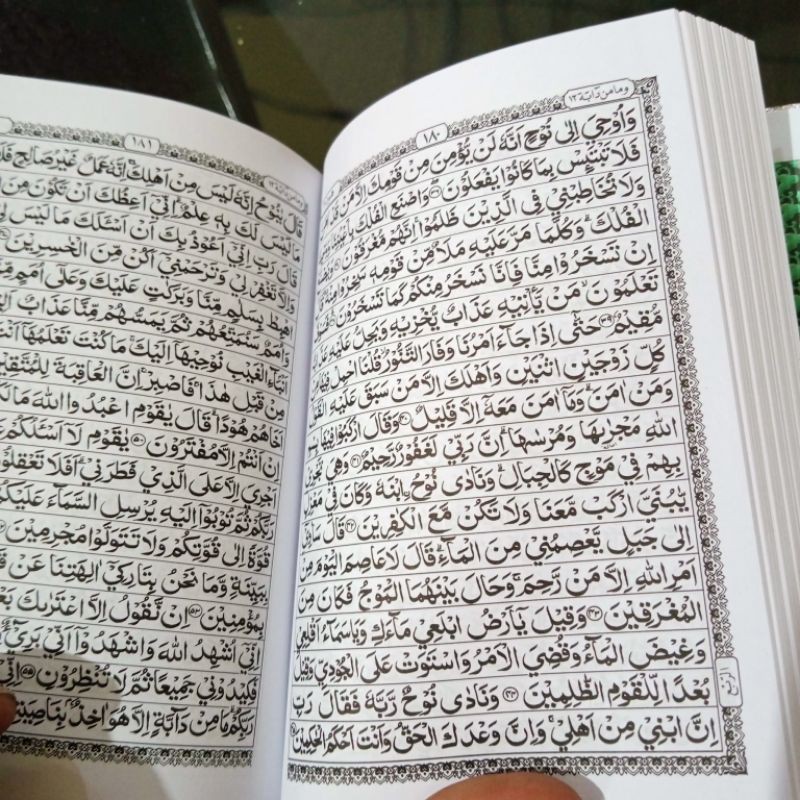 وما من دابة ١٢
١٨٠
وَأُوحِيَ إِلَى نُوحٍ أَنَّهُ لَنْ يُؤْمِنَ مِنْ قَوْمِكَ إِلَّا مَنْ قَدْ
فَلَا تَبْتَئِسْ بِمَا كَانُوا يَفْعَلُونَ ٣٦ وَاصْنَعِ الْفُلْكَ بِأَعْيُنِنَا
وَلَا تُخَاطِبْنِي فِي الَّذِينَ ظَلَمُوا إِنَّهُمْ مُغْرَقُونَ
الْفُلْكَ وَكُلَّمَا مَرَّ عَلَيْهِ مَلَأٌ مِنْ قَوْمِهِ سَخِرُوا
إِنْ تَسْخَرُوا مِنَّا فَإِنَّا نَسْخَرُ مِنْكُمْ كَمَا تَسْخَرُونَ
تَعْلَمُونَ مَنْ يَأْتِيهِ عَذَابٌ يُخْزِيهِ وَيَحِلُّ عَلَيْهِ عَذَابٌ
مُقِيمٌ ٣٩ حَتَّى إِذَا جَاءَ أَمْرُنَا وَفَارَ التَّنُّورُ قُلْنَا احْمِلْ فِيهَا
كُلٍّ زَوْجَيْنِ اثْنَيْنِ وَأَهْلَكَ إِلَّا مَنْ سَبَقَ عَلَيْهِ الْقَوْلُ
وَمَنْ آمَنَ وَمَا آمَنَ مَعَهُ إِلَّا قَلِيلٌ ٤٠ وَقَالَ ارْكَبُوا فِيهَا بِسْمِ
اللَّهِ مَجْرِىهَا وَمُرْسَاهَا إِنَّ رَبِّي لَغَفُورٌ رَحِيمٌ ٤١ وَهِيَ تَجْرِي
بِهِمْ فِي مَوْجٍ كَالْجِبَالِ وَنَادَى نُوحٌ ابْنَهُ وَكَانَ فِي مَعْزِلٍ
يَابُنَيَّ ارْكَبْ مَعَنَا وَلَا تَكُنْ مَعَ الْكَافِرِينَ ٤٢ قَالَ سَآوِي
إِلَى جَبَلٍ يَعْصِمُنِي مِنَ الْمَاءِ قَالَ لَا عَاصِمَ الْيَوْمَ مِنْ
أَمْرِ اللَّهِ إِلَّا مَنْ رَحِمَ وَحَالَ بَيْنَهُمَا الْمَوْجُ فَكَانَ مِنَ
الْمُغْرَقِينَ ٤٣ وَقِيلَ يَاأَرْضُ ابْلَعِي مَاءَكِ وَيَاسَمَاءُ أَقْلِعِي
وَغِيضَ الْمَاءُ وَقُضِيَ الْأَمْرُ وَاسْتَوَتْ عَلَى الْجُودِيِّ وَقِيلَ
بُعْدًا لِلْقَوْمِ الظَّالِمِينَ ٤٤ وَنَادَى نُوحٌ رَبَّهُ فَقَالَ رَبِّ
إِنَّ ابْنِي مِنْ أَهْلِي وَإِنَّ وَعْدَكَ الْحَقُّ وَأَنْتَ أَحْكَمُ الْحَاكِمِينَ
١٨١
قَالَ يَانُوحُ إِنَّهُ لَيْسَ مِنْ أَهْلِكَ إِنَّهُ عَمَلٌ غَيْرُ صَالِحٍ فَلَا
مَا لَيْسَ لَكَ بِهِ عِلْمٌ إِنِّي أَعِظُكَ أَنْ تَكُونَ مِنَ
قَالَ رَبِّ إِنِّي أَعُوذُ بِكَ أَنْ أَسْأَلَكَ مَا لَيْسَ لِي
وَإِلَّا تَغْفِرْ لِي وَتَرْحَمْنِي أَكُنْ مِنَ الْخَاسِرِينَ
اهْبِطْ بِسَلَامٍ مِنَّا وَبَرَكَاتٍ عَلَيْكَ وَعَلَى أُمَمٍ
وَأُمَمٌ سَنُمَتِّعُهُمْ ثُمَّ يَمَسُّهُمْ مِنَّا عَذَابٌ
أَنْبَاءِ الْغَيْبِ نُوحِيهَا إِلَيْكَ مَا كُنْتَ تَعْلَمُهَا أَنْتَ
مِنْ قَبْلِ هَذَا فَاصْبِرْ إِنَّ الْعَاقِبَةَ لِلْمُتَّقِينَ
أَخَاهُمْ هُودًا قَالَ يَاقَوْمِ اعْبُدُوا اللَّهَ مَا لَكُمْ
إِنْ أَنْتُمْ إِلَّا مُفْتَرُونَ ٥٠ يَاقَوْمِ لَا أَسْأَلُكُمْ
أَجْرِيَ إِلَّا عَلَى الَّذِي فَطَرَنِي أَفَلَا تَعْقِلُونَ
رَبَّكُمْ ثُمَّ تُوبُوا إِلَيْهِ يُرْسِلِ السَّمَاءَ عَلَيْكُمْ
قُوَّةً إِلَى قُوَّتِكُمْ وَلَا تَتَوَلَّوْا مُجْرِمِينَ
بِبَيِّنَةٍ وَمَا نَحْنُ بِتَارِكِي آلِهَتِنَا عَنْ
بِمُؤْمِنِينَ ٥٣ إِنْ نَقُولُ إِلَّا اعْتَرَاكَ
إِنِّي أُشْهِدُ اللَّهَ وَاشْهَدُوا أَنِّي بَرِيءٌ
فَكِيدُونِي جَمِيعًا ثُمَّ لَا تُنْظِرُونِ ٥٥ إِنِّي
رَبِّكُمْ مَا مِنْ دَابَّةٍ إِلَّا هُوَ آخِذٌ بِنَاصِيَتِهَا